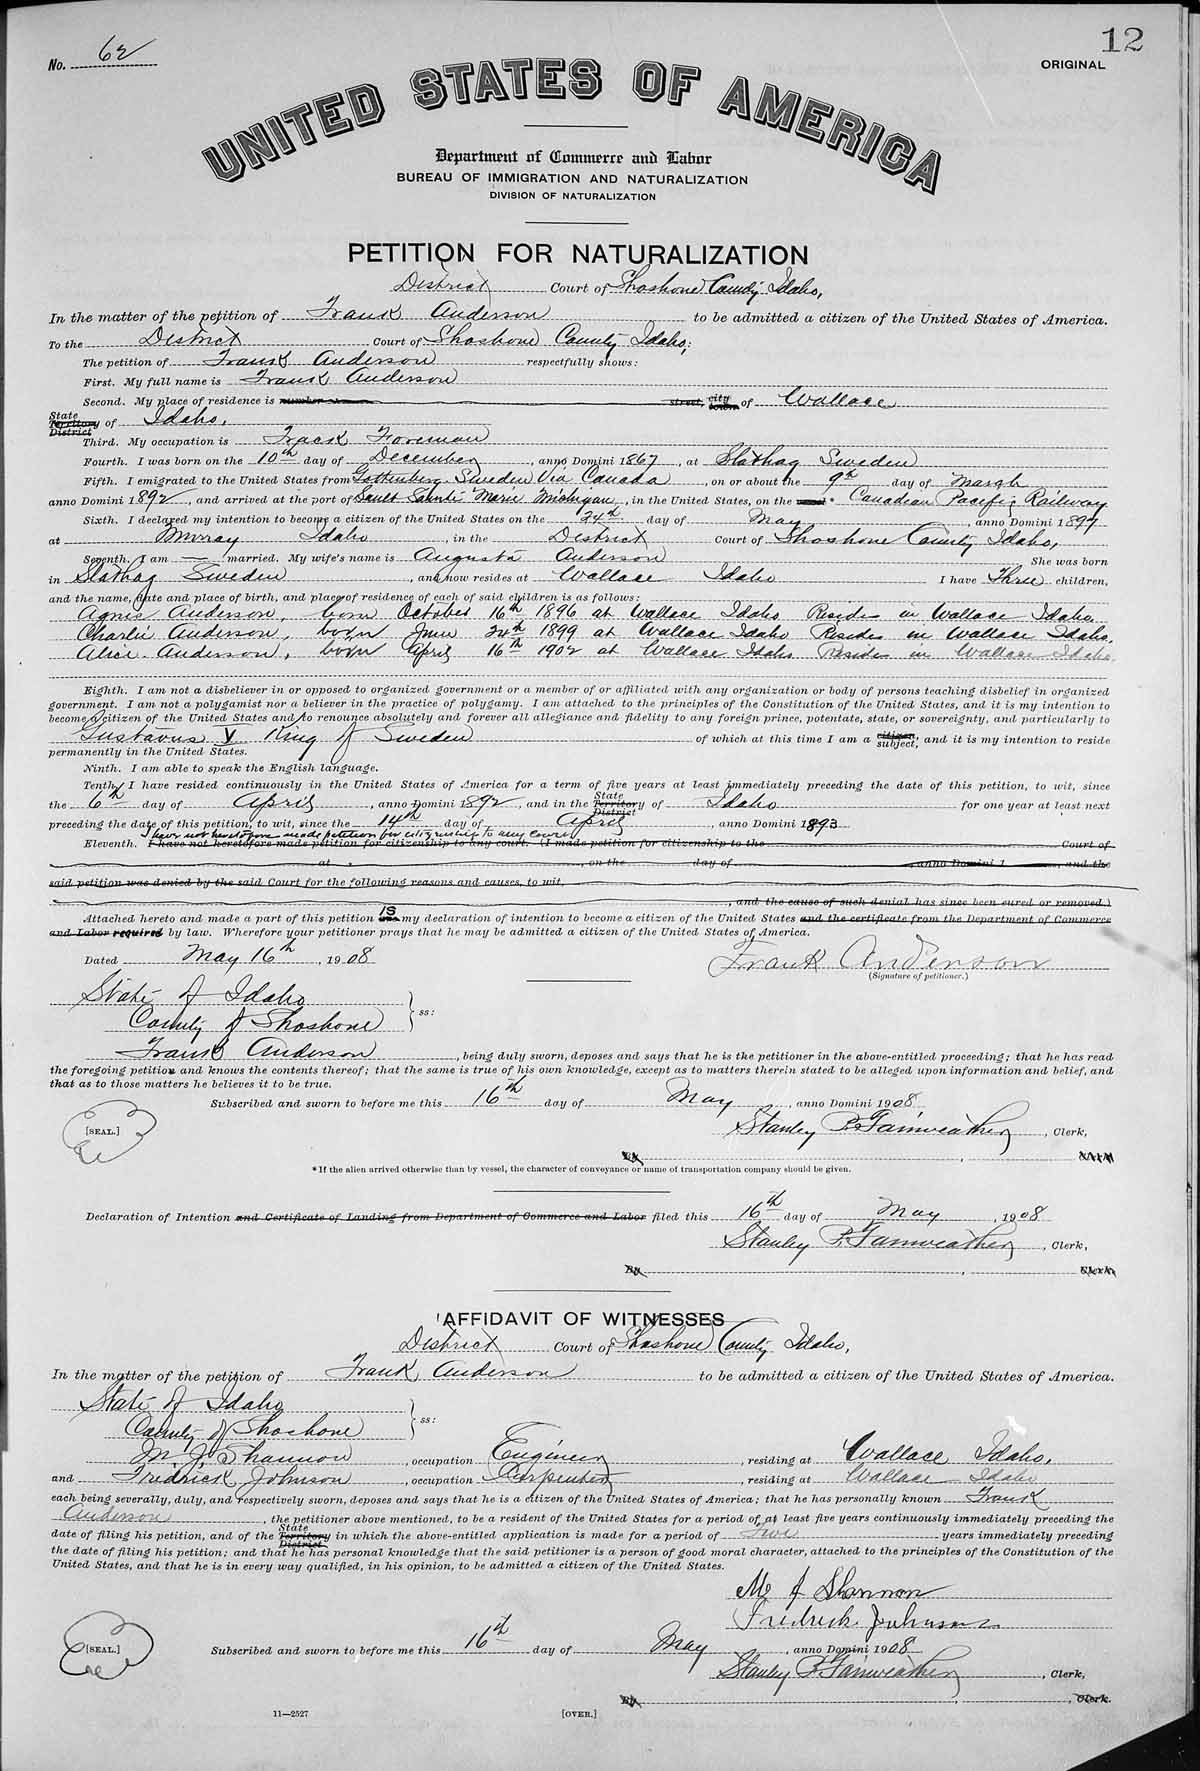 12
No. 62
ORIGINAL
UNITED STATES OF AMERICA
Department of Commerce and Labor
BUREAU OF IMMIGRATION AND NATURALIZATION
DIVISION OF NATURALIZATION
PETITION FOR NATURALIZATION
District Court of Shoshone County Idaho,
In the matter of the petition of Frank Anderson to be admitted a citizen of the United States of America.
To the District Court of Shoshone County Idaho;
The petition of Frank Anderson respectfully shows:
First. My full name is Frank Anderson
Second. My place of residence is number street, city town of Wallace
State Territory District of Idaho,
Third. My occupation is Track Foreman
Fourth. I was born on the 10th day of December, anno Domini 1867, at Slathag Sweden
Fifth. I emigrated to the United States from Gottenberg Sweden Via Canada, on or about the 9th day of March
anno Domini 1892, and arrived at the port of Sault Sainte Marie Michigan, in the United States, on the vessel * Canadian Pacific Railway
Sixth. I declared my intention to become a citizen of the United States on the 24th day of May, anno Domini 1897
at Murray Idaho, in the District Court of Shoshone County Idaho,
Seventh. I am married. My wife's name is Augusta Anderson She was born
in Slathag Sweden, and now resides at Wallace Idaho I have Three children,
and the name, date and place of birth, and place of residence of each of said children is as follows:
Agnes Anderson, born October 16th 1896 at Wallace Idaho Resides in Wallace Idaho.
Charlie Anderson, born June 24th 1899 at Wallace Idaho Resides in Wallace Idaho.
Alice Anderson, born April 16th 1902 at Wallace Idaho Resides in Wallace Idaho
Eighth. I am not a disbeliever in or opposed to organized government or a member of or affiliated with any organization or body of persons teaching disbelief in organized
government. I am not a polygamist nor a believer in the practice of polygamy. I am attached to the principles of the Constitution of the United States, and it is my intention to
become a citizen of the United States and to renounce absolutely and forever all allegiance and fidelity to any foreign prince, potentate, state, or sovereignty, and particularly to
Gustavus V King of Sweden of which at this time I am a citizen subject; and it is my intention to reside
permanently in the United States.
Ninth. I am able to speak the English language.
Tenth. I have resided continuously in the United States of America for a term of five years at least immediately preceding the date of this petition, to wit, since
the 6th day of April, anno Domini 1892, and in the State Territory District of Idaho for one year at least next
preceding the date of this petition, to wit, since the 14th day of April, anno Domini 1893
I have not heretofore made petition for citizenship to any court
Eleventh. I have not heretofore made petition for citizenship to any court. (I made petition for citizenship to the Court of
at, on the day of, anno Domini 1, and the
said petition was denied by the said Court for the following reasons and causes, to wit,
, and the cause of such denial has since been cured or removed.)
Attached hereto and made a part of this petition is my declaration of intention to become a citizen of the United States and the certificate from the Department of Commerce
and Labor required by law. Wherefore your petitioner prays that he may be admitted a citizen of the United States of America.
Dated May 16th, 1908 Frank Anderson
(Signature of petitioner.)
State of Idaho
County of Shoshone } ss:
Frank Anderson, being duly sworn, deposes and says that he is the petitioner in the above-entitled proceeding; that he has read
the foregoing petition and knows the contents thereof; that the same is true of his own knowledge, except as to matters therein stated to be alleged upon information and belief, and
that as to those matters he believes it to be true.
Subscribed and sworn to before me this 16th day of May, anno Domini 1908
[SEAL.] Stanley P. Fairweather, Clerk,
By, Clerk
*If the alien arrived otherwise than by vessel, the character of conveyance or name of transportation company should be given.
Declaration of Intention and Certificate of Landing from Department of Commerce and Labor filed this 16th day of May, 1908
Stanley P. Fairweather, Clerk,
By, Clerk.
AFFIDAVIT OF WITNESSES
District Court of Shoshone County Idaho,
In the matter of the petition of Frank Anderson to be admitted a citizen of the United States of America.
State of Idaho
County of Shoshone } ss:
M. J. Shannon, occupation Engineer, residing at Wallace Idaho,
and Fredrick Johnson, occupation Carpenter, residing at Wallace Idaho
each being severally, duly, and respectively sworn, deposes and says that he is a citizen of the United States of America; that he has personally known Frank
Anderson, the petitioner above mentioned, to be a resident of the United States for a period of at least five years continuously immediately preceding the
date of filing his petition, and of the State Territory District in which the above-entitled application is made for a period of Five years immediately preceding
the date of filing his petition; and that he has personal knowledge that the said petitioner is a person of good moral character, attached to the principles of the Constitution of the
United States, and that he is in every way qualified, in his opinion, to be admitted a citizen of the United States.
M J Shannon
Fredrick Johnson
[SEAL.] Subscribed and sworn to before me this 16th day of May, anno Domini 1908
Stanley P. Fairweather, Clerk,
By, Clerk.
11—2527 [OVER.]